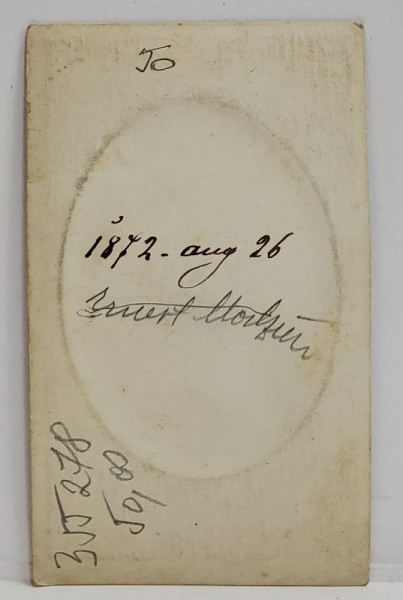 50
1872 - aug 26
Ernest
355278
50,00